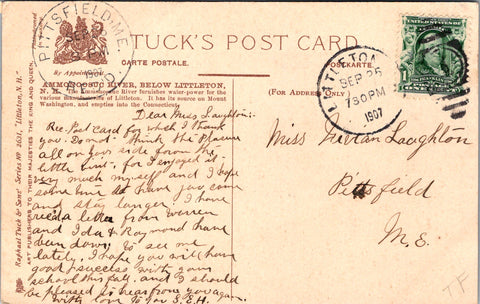 PITTSFIELD, ME.
SEP
1907
TUCK'S POST CARD
CARTE POSTALE. POSTKARTE.
By Appointment.
AMMONOOSUC RIVER, BELOW LITTLETON,
N. H. The Ammonoosuc River furnishes water-power for the
various manufactures of Littleton. It has its source on Mount
Washington, and empties into the Connecticut.
(For Address Only)
Raphael Tuck & Sons' Series No 2631, "Littleton, N. H."
ART PUBLISHERS TO THEIR MAJESTIES THE KING AND QUEEN.
SEP 25
7 30 PM
1907
1
Dear Miss Laughton:-
Re. Post card for which I thank
you. Do not think the pleasure
all on your side from the
little visit, for I enjoyed it
very much myself and I hope
some time to have you come
and stay longer. I have
rec'd a letter from Warren
and Ida & Raymond have
been down to see me
lately. I hope you will have
good success with your
school this fall and I should
be pleased to hear from you again
With love to you S.E.H.
Miss Laughton
Pittsfield
M.E.
TF